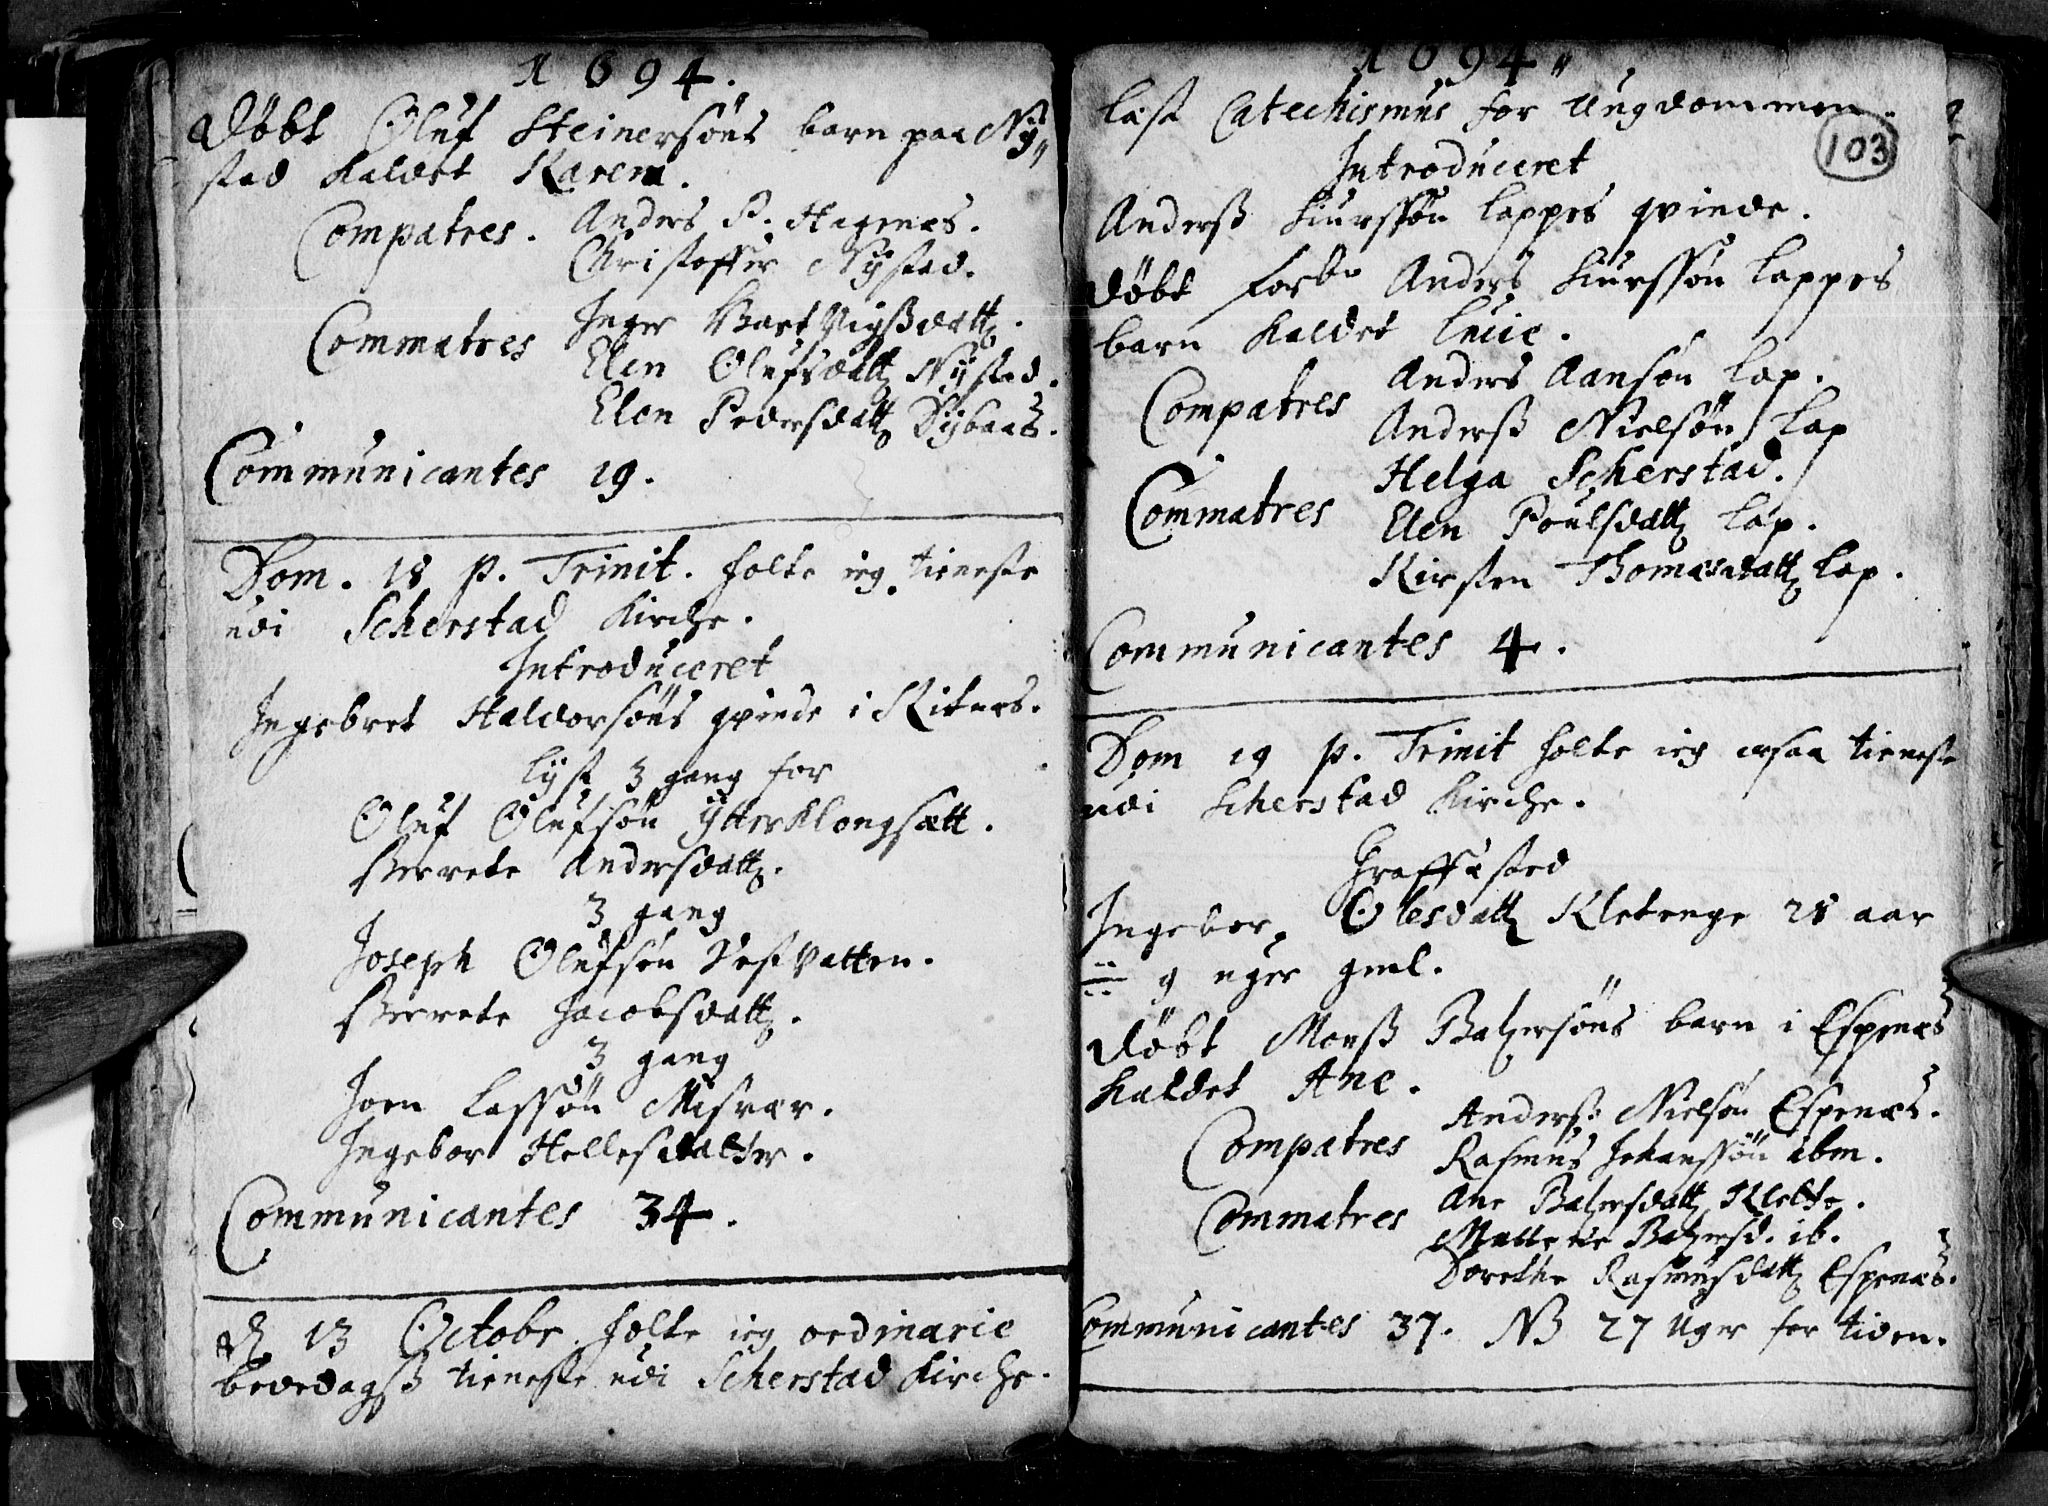 1694.
Døbt Oluf Steinersøns barn paa Ny„
stad kaldet Karen.
Compatres. Anders P. Hagenæs.
Christoffer Nystad.
Commatres Inger
Elen Olufsdatt Nystad.
Elen Pedersdatt Dybaas.
Communicantes 19.
Dom. 18 p. Trinit. holte ieg tieneste
udi Scherstad Kirche.
Introduceret
Ingebret Haldorsøns qvinde i Kiknæs.
Lyst 3 gang for
Oluf Olufsøn Ytterklongsætt.
Berrete Andersdatt.
3 gang
Joseph Olufsøn Vestvatten.
Berrete Jacobsdatt.
3 gang
Joen Lassøn Misvær.
Ingebor Hellesdatter.
Communicantes 34.
d. 13 Octobr. holte ieg ordinarie
bededagsß tieneste udi Scherstad Kirche.
1694„
læst Catechismus for Ungdommen.
103
Introduceret
Andersß Siurssøn Lappes qvinde.
Døbt forbn Anders Siurssøn Lappes
barn kaldet Lucie.
Compatres Anders Aansøn Lap.
Andersß Nielsøn Lap
Commatres Helga Scherstad.
Elen Poulsdatt Lap.
Kirsten Thomasdatt Lap.
Communicantes 4.
Dom 19 p. Trinit holte ieg ocsaa tieneste
udi Scherstad Kirche.
Graffæsted
Ingebor Olesdatt Kletenge 28 aar
÷ 9 uger gml.
Døbt Monsß Balzersøns barn i Espenæs
kaldet Ane.
Compatres Andersß Nielsøn Espenæs.
Rasmus Johanssøn ibm.
Commatres Ane Balzersdatt Klette.
Mætte Balzersd. ib.
Dorethe Rasmusdatt Espenæs.
Communicantes 37. NB 27 Uger for tiden.